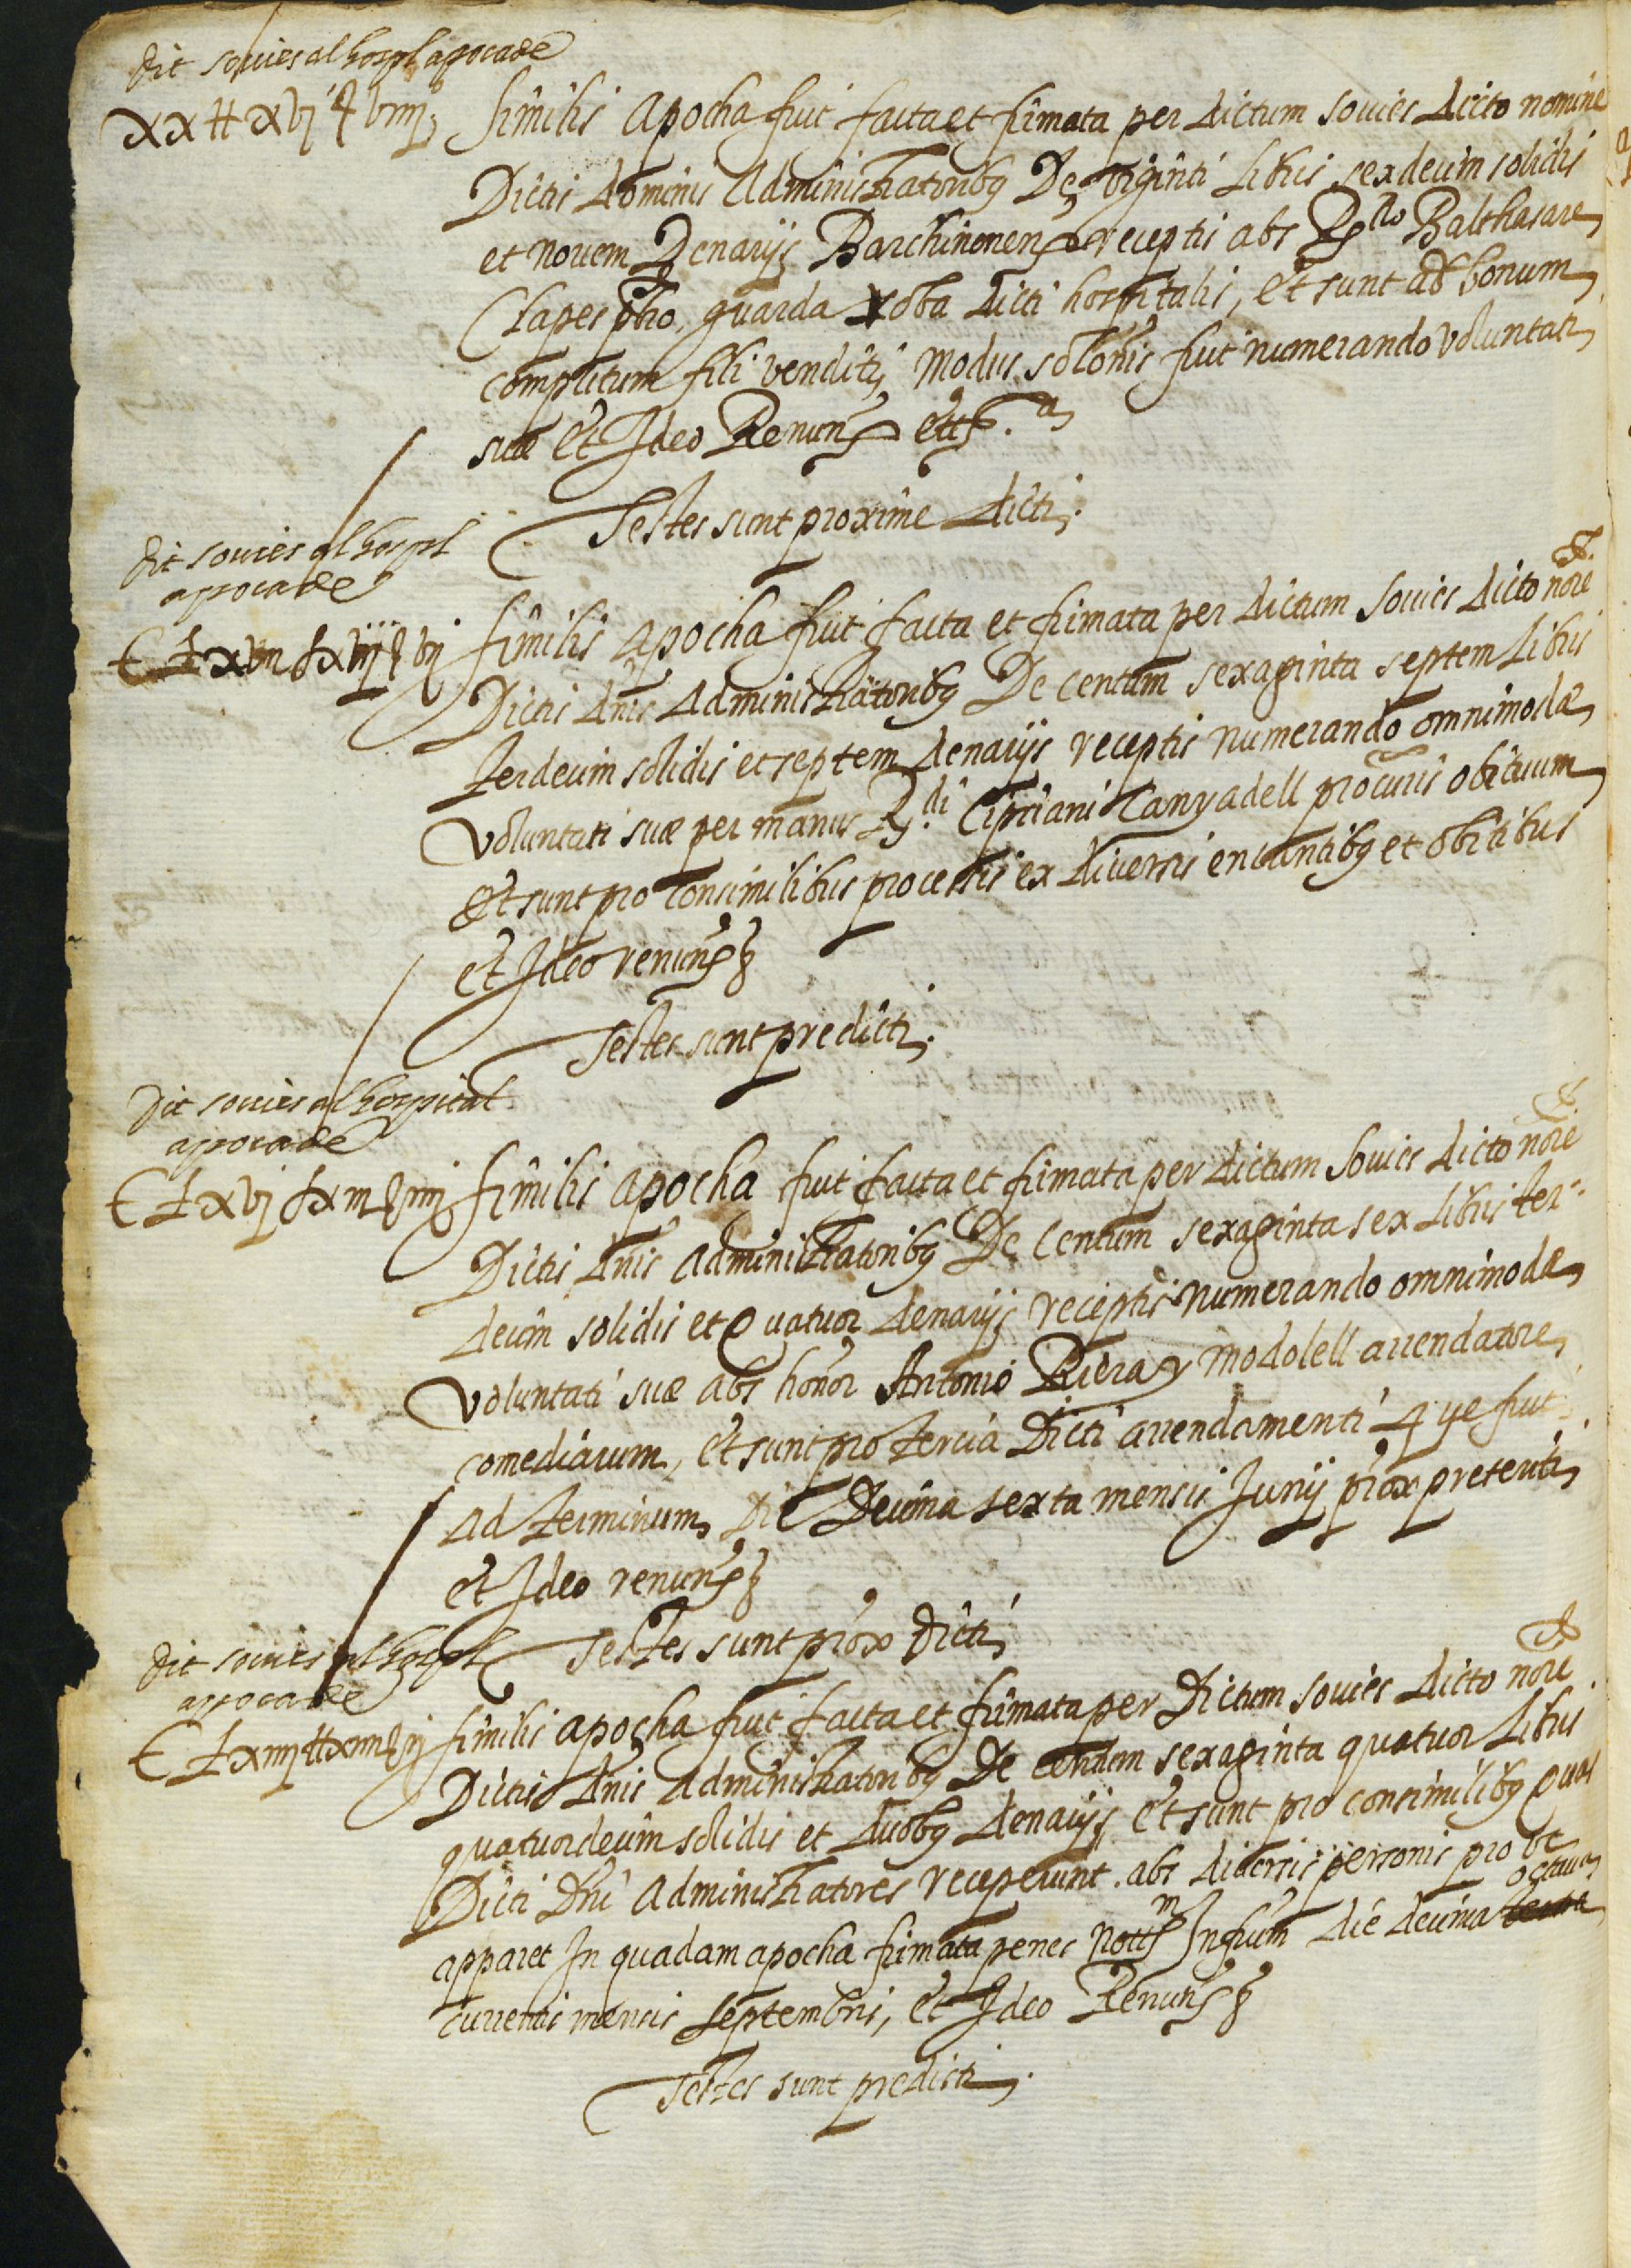 dit sovies al hospl apoca de
xx ħ xvj ꝭ viiij
Similis apocha fuit facta et firmata per dictum sovies dicto nomine
Dictis dominis Administratoribus De viginti libris sexdecim solidis
et novem Denarijs Barchinonens receptis abs Rdo Balthasare
Clapes pbro, guarda roba dicti hospitalis, Et sunt ad bonum
computum fili venditi, modus solonis fuit numerando voluntati
suæ Et Ideo Renuns etts.a
Testes sunt proxime dicti.
dit sovies al hospl
apoca de
C Lxvii s xiij d vij
Similis apocha fuit facta et firmata per dictum sovies dicto noie
Dictis dnis Administratoribus De centum sexaginta septem libris
terdecim solidis et septem denarijs receptis numerando omnimodæ
voluntati suæ per manus Rdi Cipriani Canyadell procuris obituum
Et sunt pro consimilibus processis ex diversis encantibus et obitibus
et Ideo renuns
Testes sunt predicti.
dit sovies al hospital
apoca de
C Lxvj s xiij d iiij
Similis apocha fuit facta et firmata per dictum sovies dicto noie
Dictis dnis Administratoribus De Centum sexaginta sex libris ter-
decim solidis et Quatuor denarijs receptis numerando omnimodæ
voluntati suæ abs honor Antonio Riera y modolell arrendatore
comediarum, Et sunt pro tercia Dicti arrendamenti que fuit
ad terminum Die Decima sexta mensis Junij prox preteriti
et Ideo renuns
Testes sunt prox dicti
dit sovies al hospl
apoca de
C Lxiiij ħ xiiii d ij
Similis apocha fuit facta et firmata per Dictum sovies dicto noie
Dictis dnis Administratoribus De centum sexaginta quatuor libris
quatuordecim solidis et duobus denarijs Et sunt pro consimilibus quas
Dicti Dni Administratores receperunt abs diversis personis pro ut
apparet In quadam apocha firmata penes nottm Infrum die decima octava
currentis mensis septembris, Et Ideo Renuns
Testes sunt predicti.